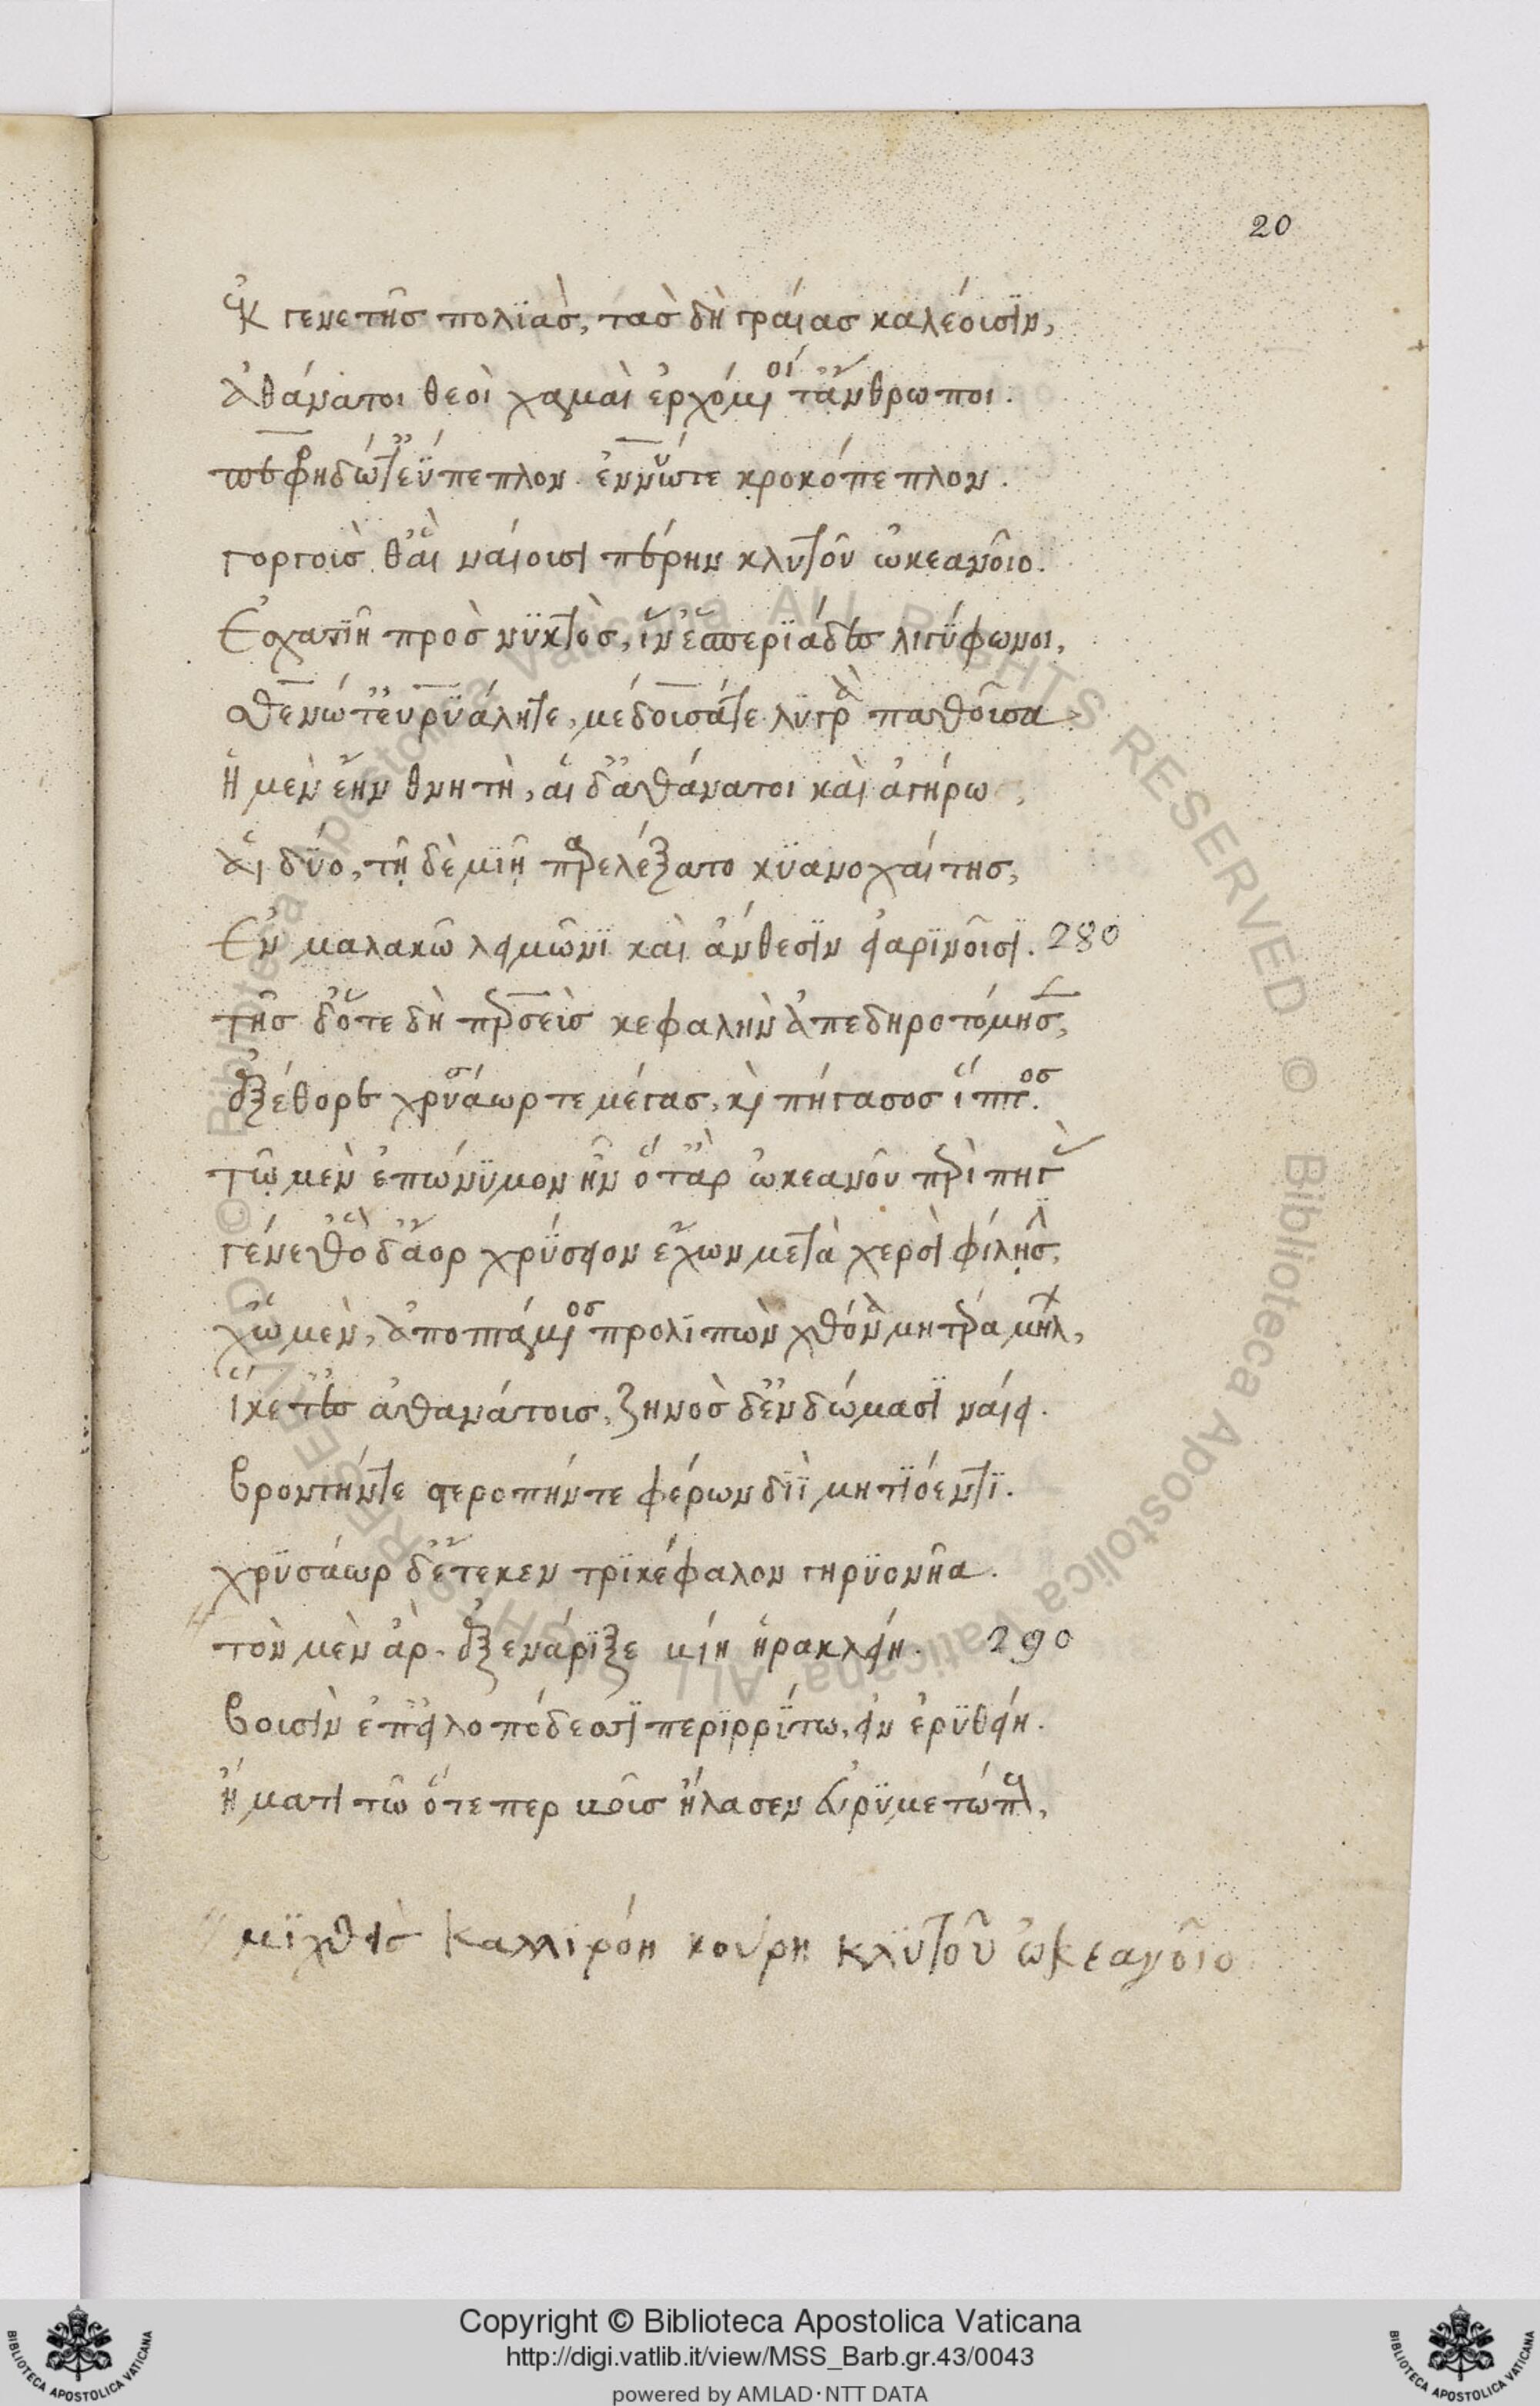 20
ἐκ γενετῆς πολϊὰς, τὰς δὴ γραίας καλέουσϊν,
ἀθάνατοι θεοὶ χαμαὶ ἐρχόμενοί τ' ἄνθρωποι.
πεφρηδώ τ' εὔπεπλον. ἐννυώ τε κροκόπεπλον.
γοργοὺς θ' αἳ ναίουσι πέρην κλυτοῦ ὠκεανοῖο.
Ἐσχατϊῆ πρὸς νϋκτὸς, ἵν' ἑσπερϊάδες λιγύφωνοι,
σθενώ τ' εὐρϋάλη τε, μέδουσά τε λϋγρὰ παθοῦσα
ἡ μὲν ἔην θνητὴ, αἱ δ' ἀθάνατοι καὶ ἀγήρω,
αἱ δύο, τῇ δὲ μϊῇ παρελέξατο κϋανοχαίτης,
Ἐν μαλακῶ λειμῶνϊ καὶ ἄνθεσϊν εἰαρϊνοῖσϊ. 280
τῆς δ' ὅτε δὴ περσεὺς κεφαλὴν ἀπεδηροτόμησεν,
ἐξέθορε χρυσάωρ τε μέγας, καὶ πήγασος ἵππος.
τῶ μὲν ἐπώνϋμον ἦν ὅτ' ἂρ ὠκεανοῦ περὶ πηγὰς
γένεθ' ὁ δ' ἄορ χρύσειον ἔχων μετὰ χερσὶ φίλῃσι,
χὠ μὲν, ἀποπτάμενος προλιπὼν χθόνα μητέρα μήλων,
ἵκετ' ἐς ἀθανάτους, ζηνὸς δ' ἐν δώμασϊ ναίει.
βροντήν τε στεροπήν τε φέρων δϊῒ μητϊόεντϊ.
χρϋσάωρ δ' ἔτεκεν τρϊκέφαλον γηρϋονῆα.
τὸν μὲν ἂρ ἐξενάρϊξε βίη ἡρακλείη. 290
βουσὶν ἐπ' εἰλοπόδεσσϊ περϊρρύτω, εἰν ἐρϋθείη.
ἤματι τῶ ὅτε περ βοῦς ἤλασεν εὐρϋμετώπους,
μϊχθεὶς Καλλιρόη κούρη κλϋτοῦ ὠκεανοῖο
Copyright © Biblioteca Apostolica Vaticana
http://digi.vatlib.it/view/MSS_Barb.gr.43/0043
powered by AMLAD·NTT DATA
© Biblioteca Apostolica Vaticana ALL RIGHTS RESERVED © Biblioteca Apostolica Vaticana ALL RIGHTS RESERVED
BIBLIOTECA APOSTOLICA VATICANA
BIBLIOTECA APOSTOLICA VATICANA